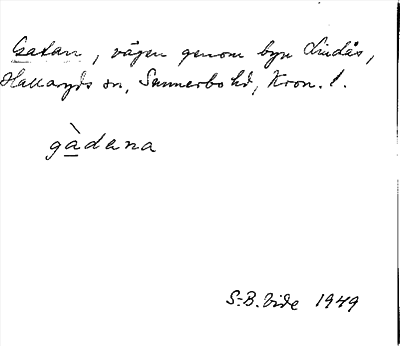 Gatan, vägen genom byn Lindås,
Hallaryds sn, Sunnerbo hd, Kron. l.
gàdana
S.-B. Vide 1949